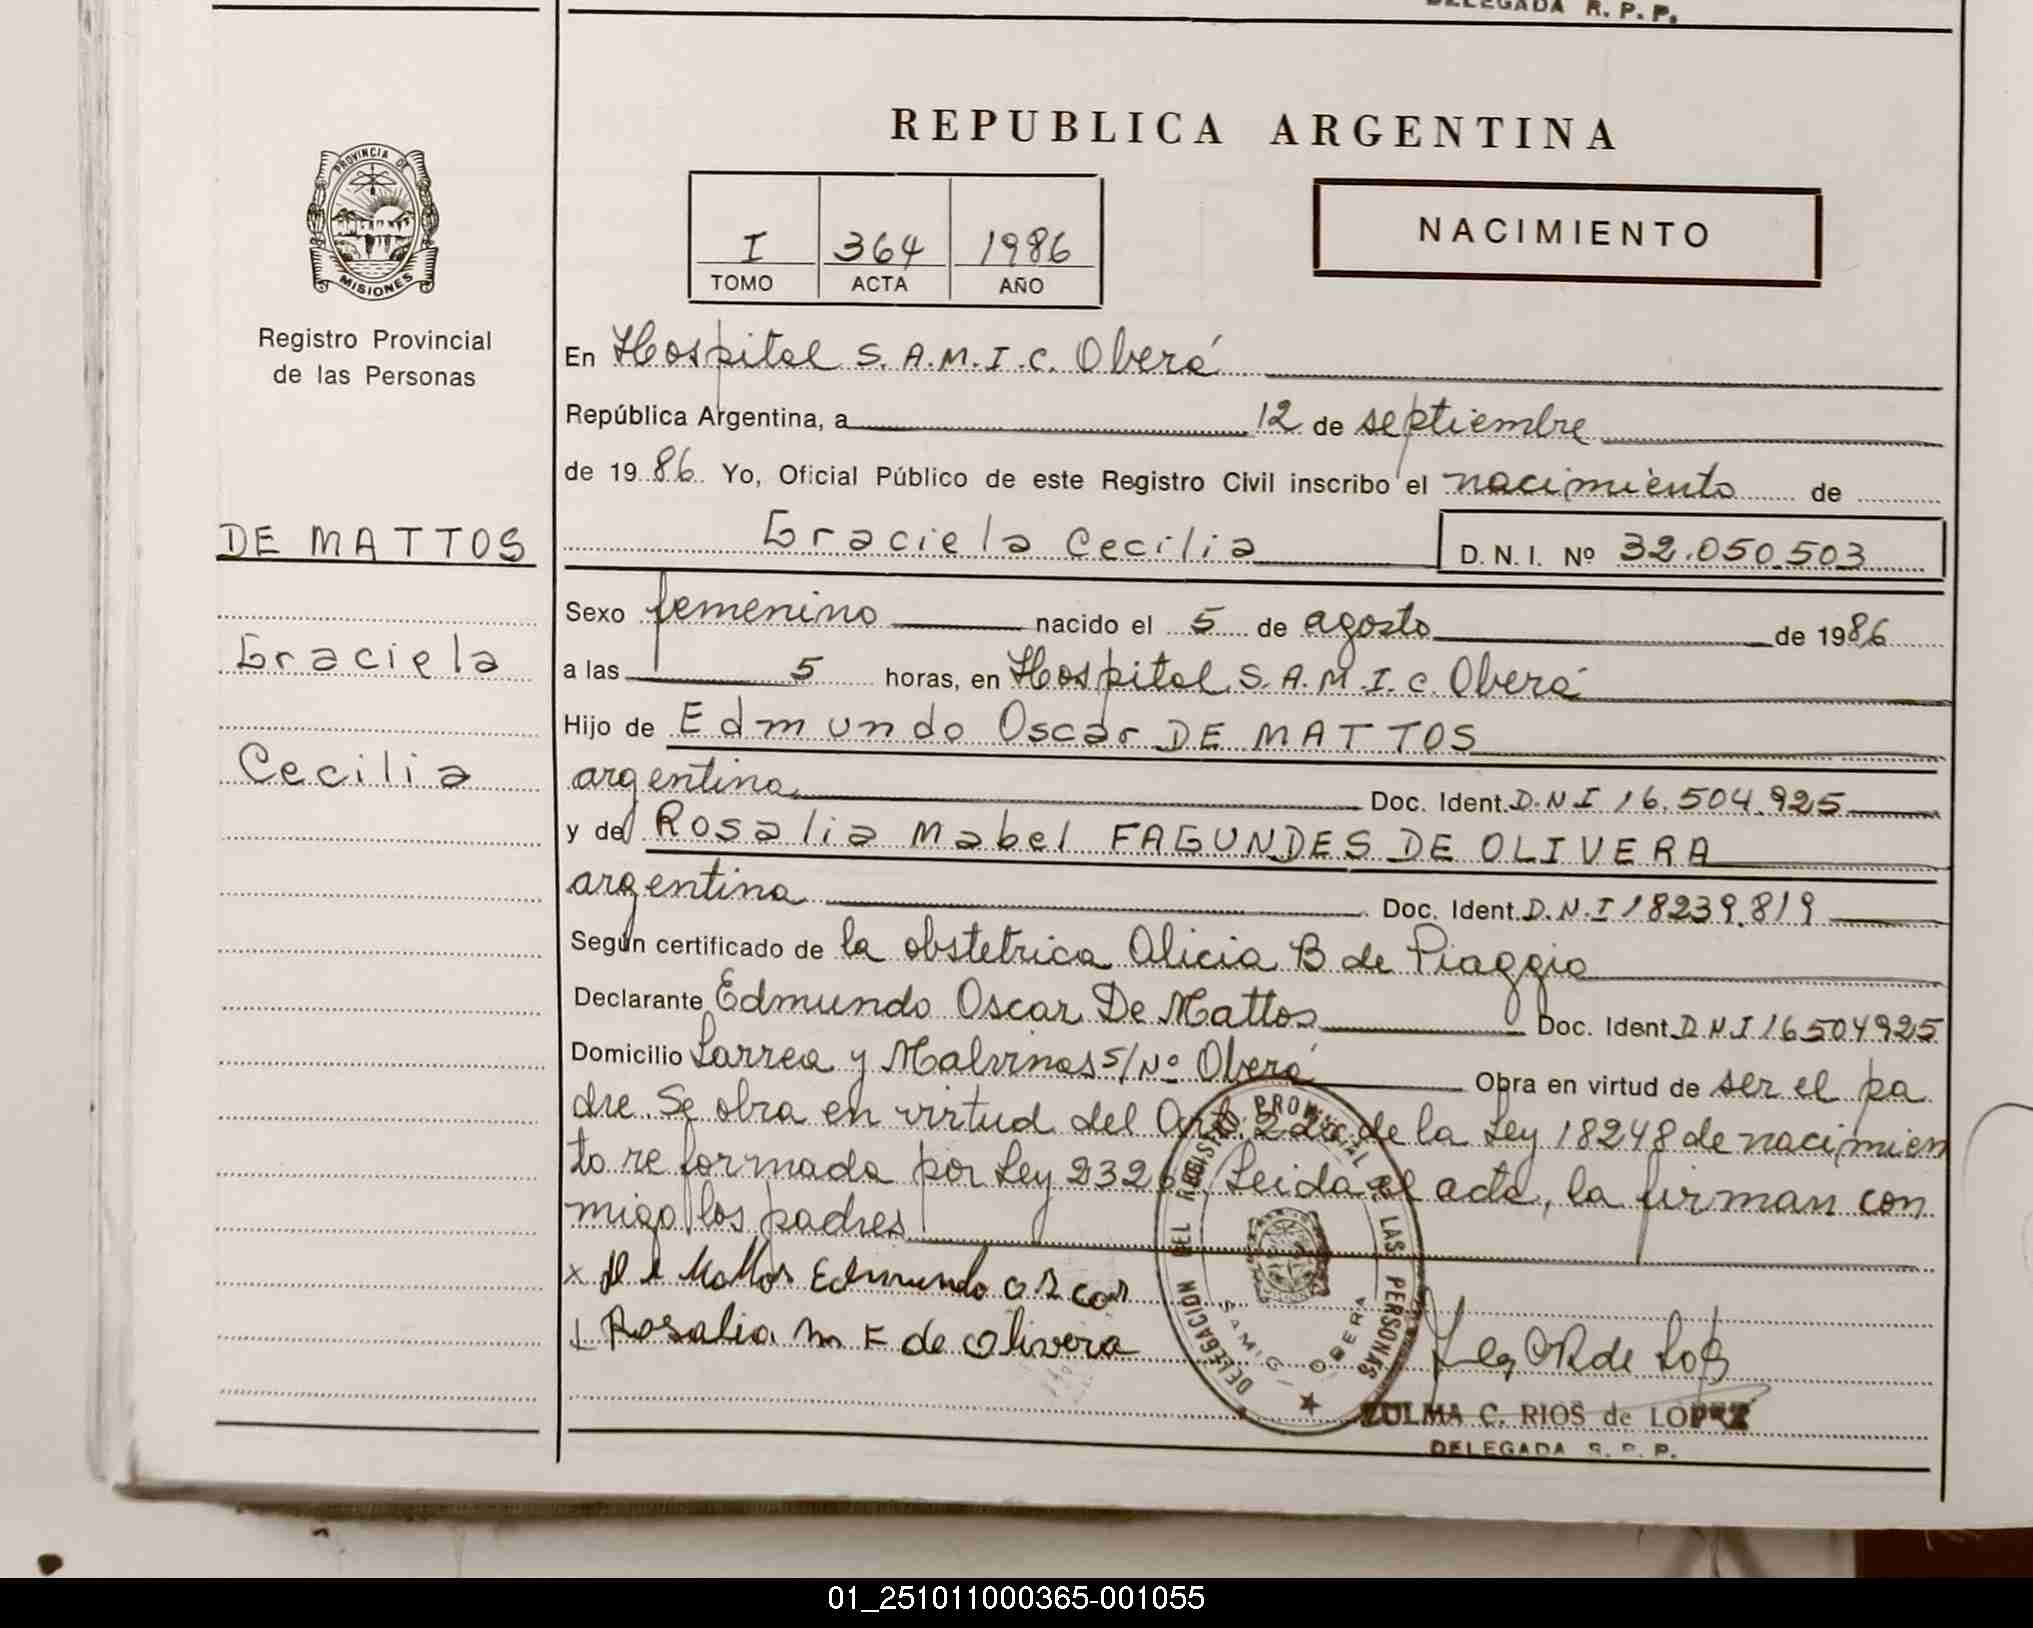 DELEGADA R. P. P.
REPUBLICA ARGENTINA
PROVINCIA DE
MISIONES
Registro Provincial
de las Personas
I 364 1986
TOMO ACTA AÑO
NACIMIENTO
En Hospital S.A.M.I.C. Oberá
República Argentina, a 12 de septiembre
de 1986 Yo, Oficial Público de este Registro Civil inscribo el nacimiento de
DE MATTOS
Graciela
Cecilia
Graciela Cecilia D.N.I. Nº 32.050.503
Sexo femenino nacido el 5 de agosto de 1986
a las 5 horas, en Hospital S.A.M.I.C. Oberá
Hijo de Edmundo Oscar DE MATTOS
argentina Doc. Ident. D.N.I 16.504.925
y de Rosalia Mabel FAGUNDES DE OLIVERA
argentina Doc. Ident. D.N.I 18239.819
Según certificado de la obstetrica Alicia B de Piaggio
Declarante Edmundo Oscar De Mattos Doc. Ident. D.N.I 16504925
Domicilio Larrea y Malvinas S/Nº Oberá Obra en virtud de ser el pa
dre. Se obra en virtud del Art. 2 de la Ley 18248 de nacimien
to reformada por Ley 2326 Leida el acta, la firman con
migo los padres
x De Mattos Edmundo Oscar
Rosalia M F de Olivera
DELEGACION DEL REGISTRO PROVINCIAL DE LAS PERSONAS
SAMIC - OBERA
ZULMA C. RIOS de LOPEZ
DELEGADA R. P. P.
01_251011000365-001055